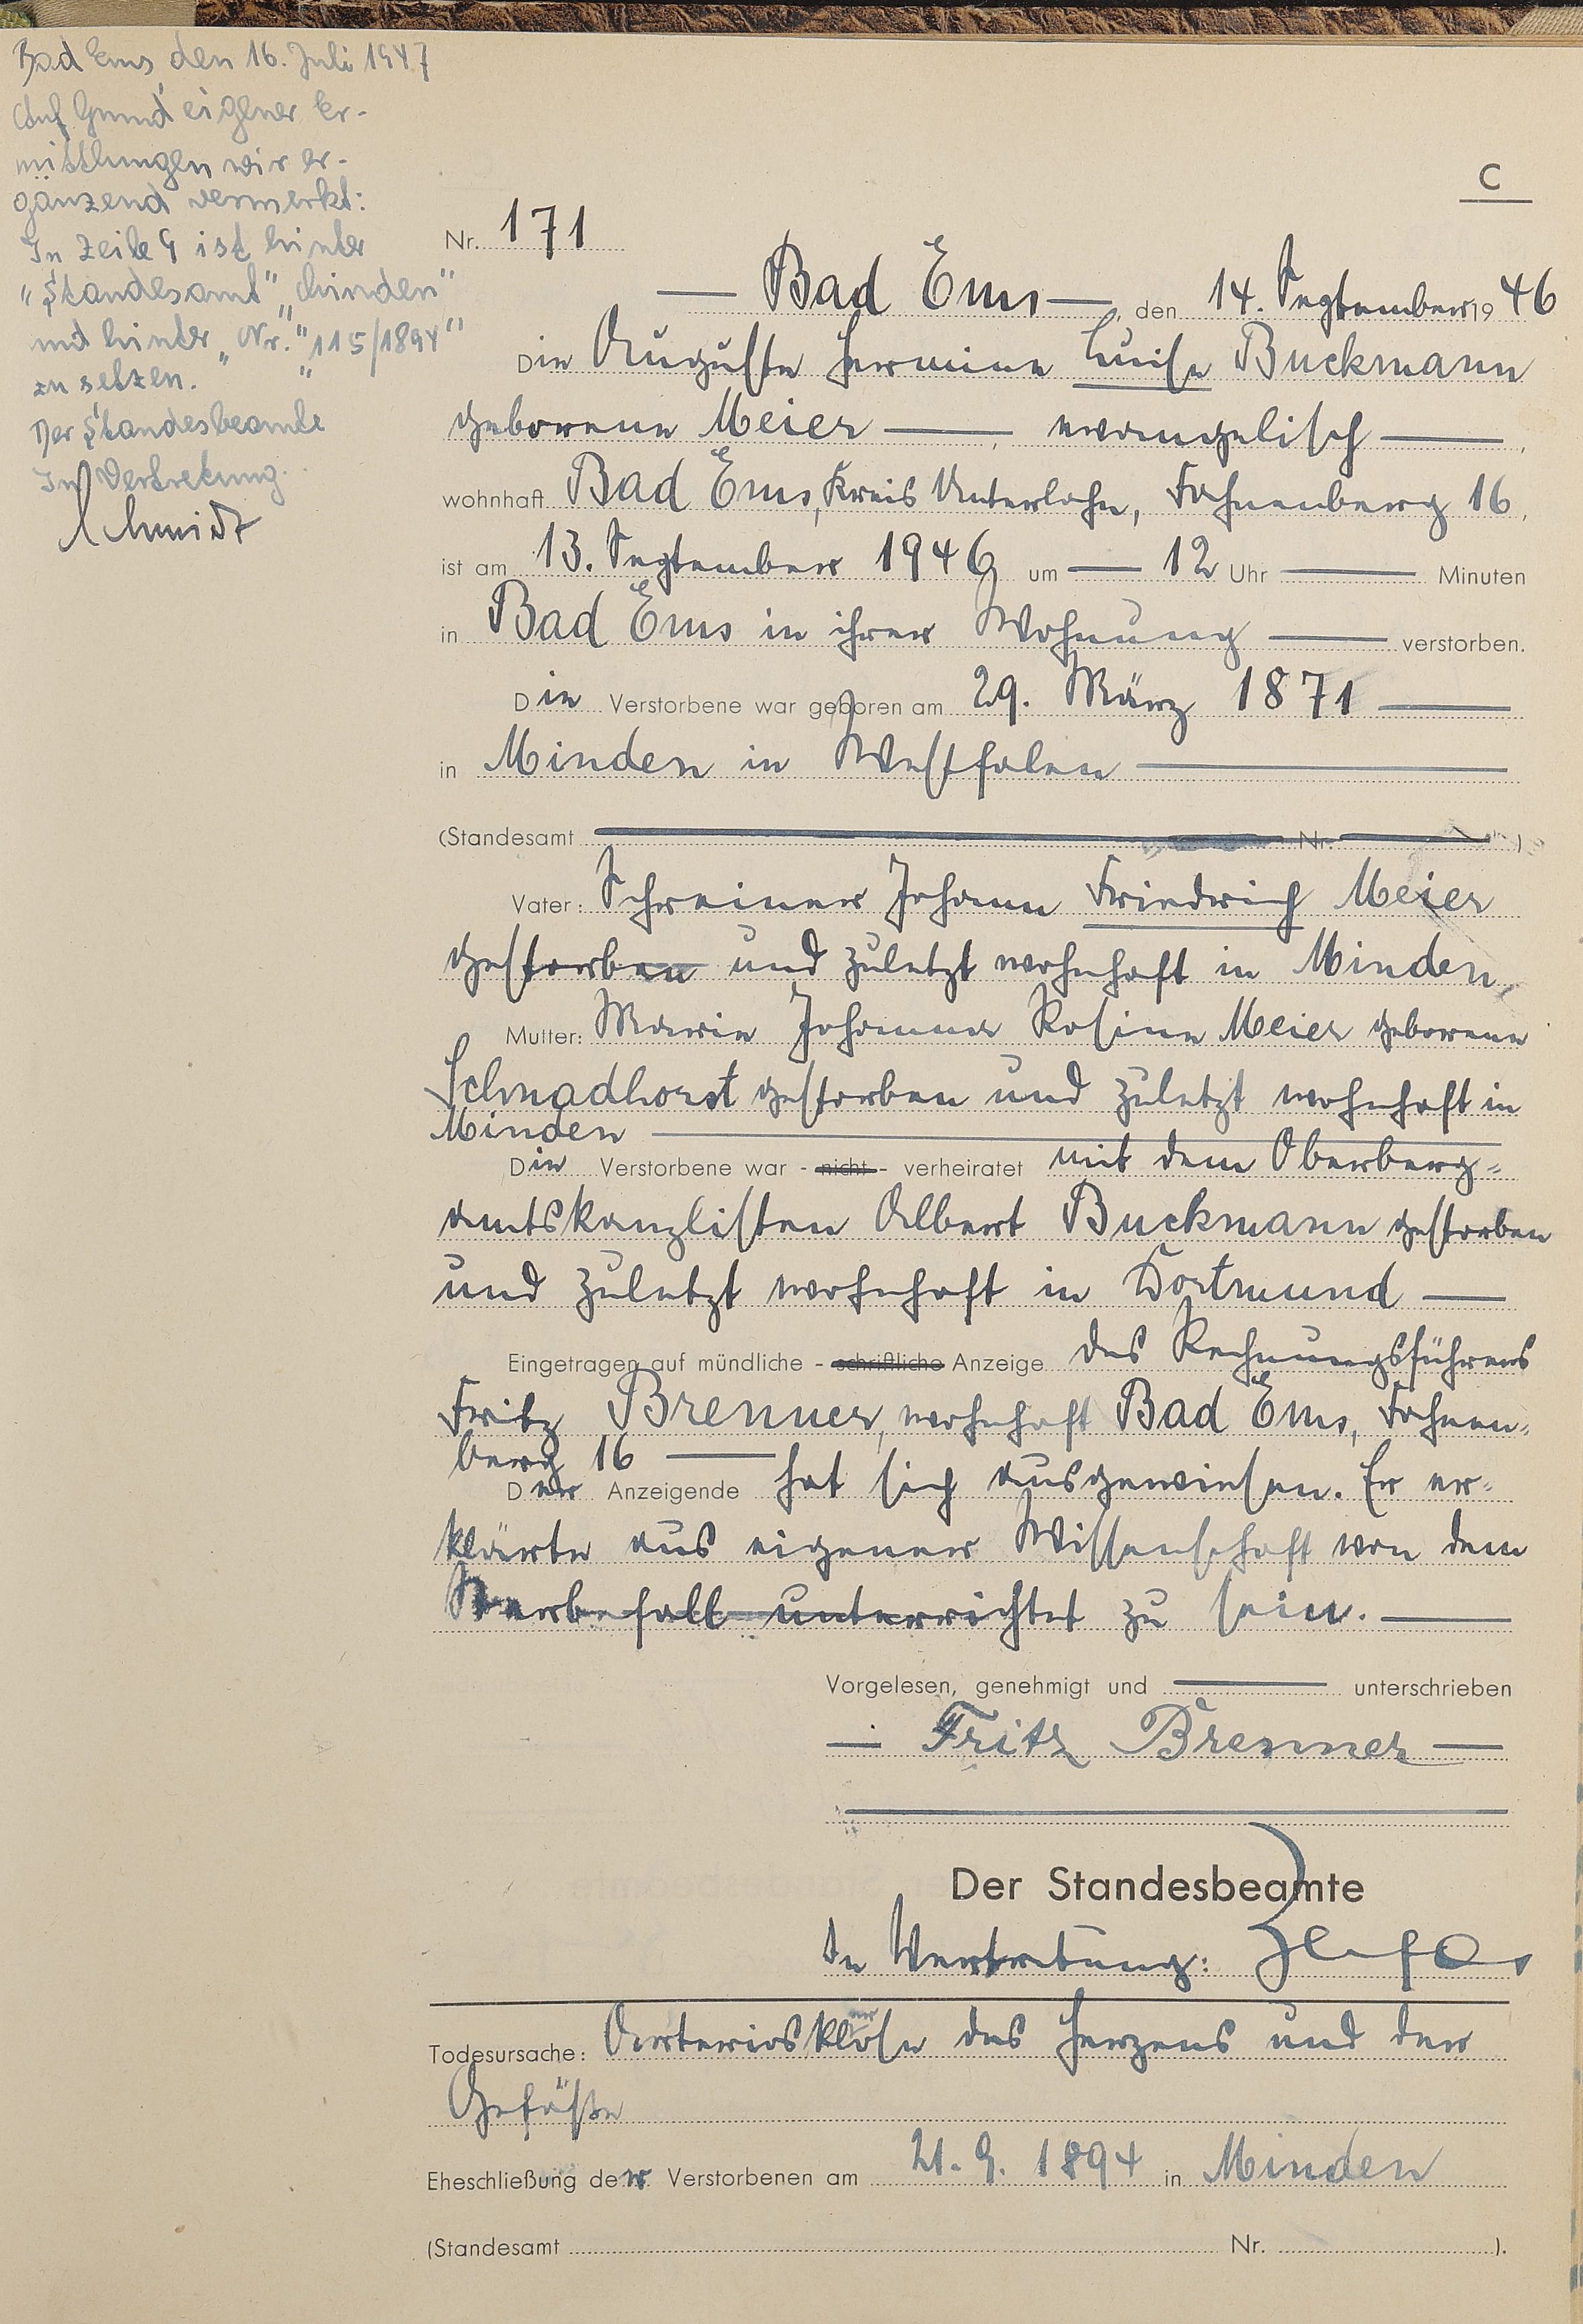 Bad Ems, den 16. Juli 1947
Auf Grund eigener Er-
mittlungen wir er-
gänzend vermerkt:
In Zeile 9 ist hinter
"Standesamt" "Minden"
und hinter "Nr." "115/1894"
zu setzen.
Der Standesbeamte
In Vertretung
Schmidt
C
Nr. 171
— Bad Ems —, den 14. September 1946
Die Auguste Hermine Luise Buckmann
geborene Meier —, evangelisch —,
wohnhaft Bad Ems, Kreis Unterlahn, Fahnenberg 16,
ist am 13. September 1946 um — 12 Uhr — Minuten
in Bad Ems in ihrer Wohnung — verstorben.
Die Verstorbene war geboren am 29. März 1871 —
in Minden in Westfalen —
(Standesamt — Nr. — )
Vater: Schreiner Johann Friedrich Meier
gestorben und zuletzt wohnhaft in Minden,
Mutter: Marie Johanna Rosine Meier geborene
Schnadhorst gestorben und zuletzt wohnhaft in
Minden —
Die Verstorbene war - nicht - verheiratet mit dem Oberberg=
amtskanzlisten Albert Buckmann gestorben
und zuletzt wohnhaft in Dortmund —
Eingetragen auf mündliche - schriftliche Anzeige des Rechnungsführers
Fritz Brenner, wohnhaft Bad Ems, Fahnen=
berg 16 —
Der Anzeigende hat sich ausgewiesen. Er er=
klärte aus eigener Wissenschaft von dem
Sterbefall unterrichtet zu sein. —
Vorgelesen, genehmigt und — unterschrieben
— Fritz Brenner —
Der Standesbeamte
In Vertretung:
Todesursache: Arteriosklose des Herzens und der
Gefäße
Eheschließung der Verstorbenen am 21. 9. 1894 in Minden
(Standesamt Nr. ).